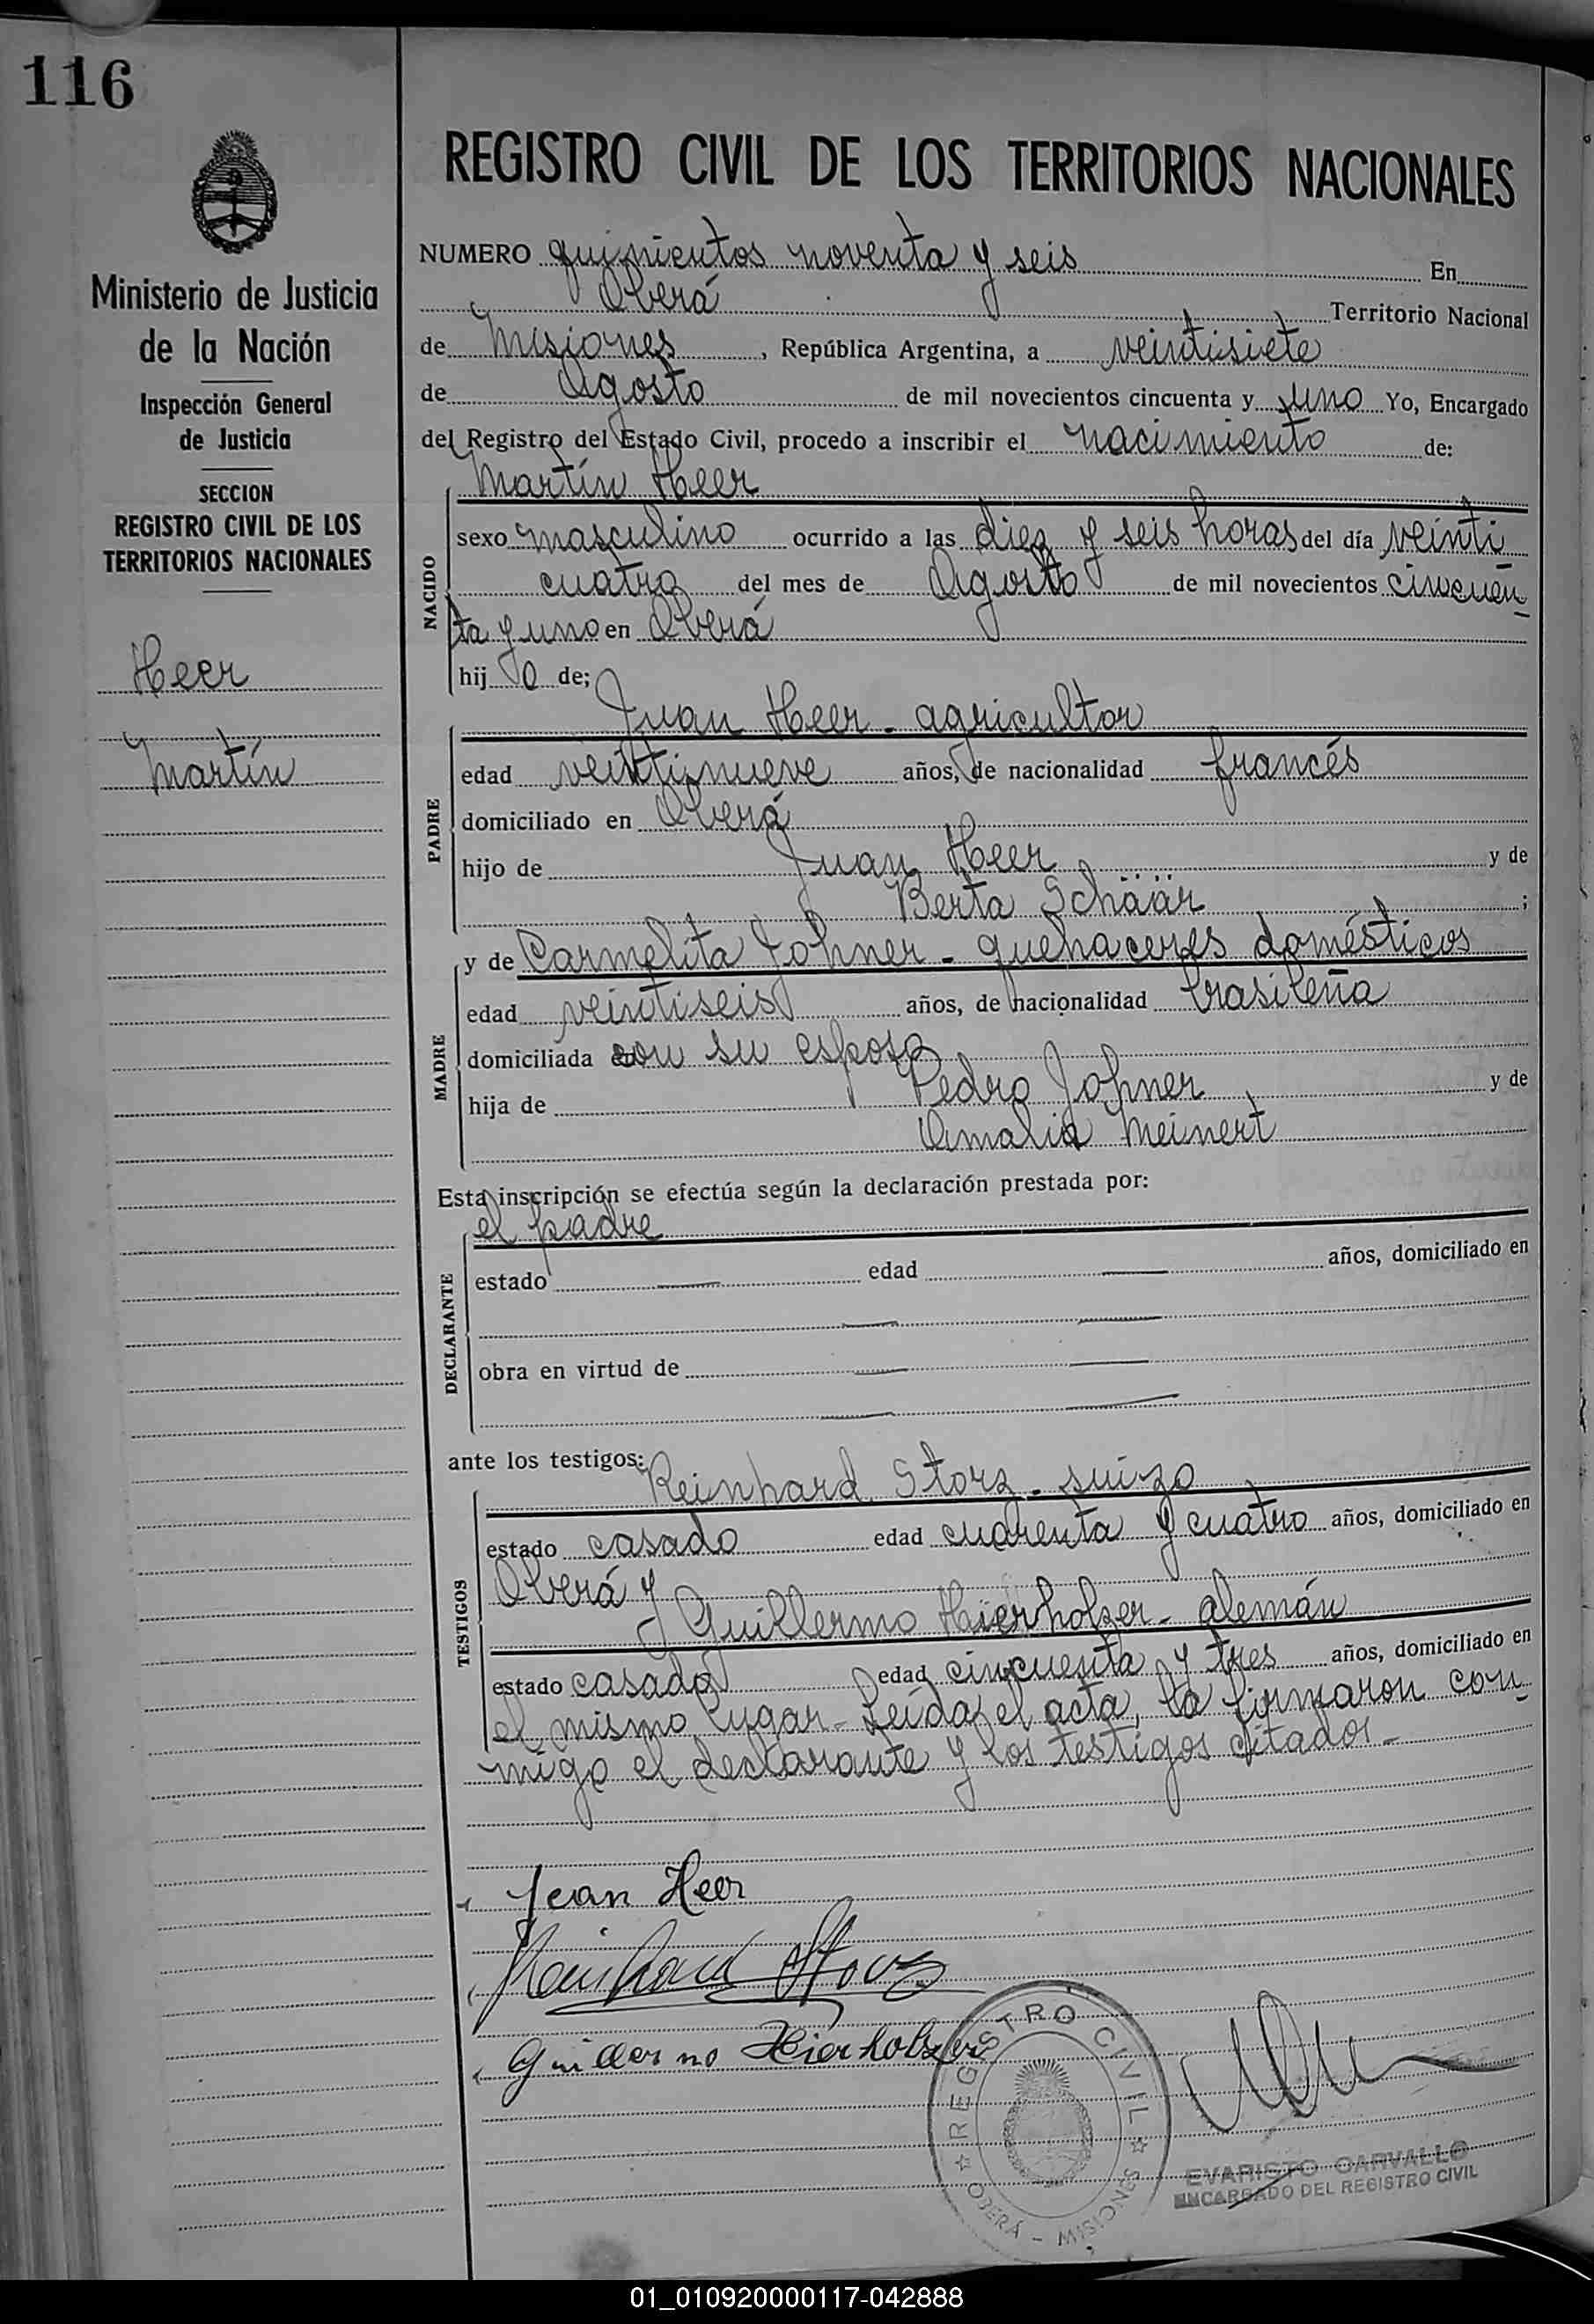 116
Ministerio de Justicia
de la Nación
Inspección General
de Justicia
SECCION
REGISTRO CIVIL DE LOS
TERRITORIOS NACIONALES
Heer
Martín
REGISTRO CIVIL DE LOS TERRITORIOS NACIONALES
NUMERO quinientos noventa y seis En
Oberá Territorio Nacional
de Misiones, República Argentina, a veintisiete
de Agosto de mil novecientos cincuenta y uno Yo, Encargado
del Registro del Estado Civil, procedo a inscribir el nacimiento de:
Martín Heer
NACIDO
sexo masculino ocurrido a las diez y seis horas del día veinti
cuatro del mes de Agosto de mil novecientos cincuen
ta y uno en Oberá
hijo de;
Juan Heer - agricultor
PADRE
edad veintinueve años, de nacionalidad francés
domiciliado en Oberá
hijo de Juan Heer y de
Berta Schäär ;
MADRE
y de Carmelita Johner - quehaceres domésticos
edad veintiseis años, de nacionalidad brasileña
domiciliada con su esposo
hija de Pedro Johner y de
Amalia Meinert
Esta inscripción se efectúa según la declaración prestada por:
el padre
DECLARANTE
estado — edad — años, domiciliado en
— —
obra en virtud de — —
— —
ante los testigos:
Reinhard Storz - suizo
TESTIGOS
estado casado edad cuarenta y cuatro años, domiciliado en
Oberá y
Guillermo Hierholzer - alemán
estado casado edad cincuenta y tres años, domiciliado en
el mismo lugar - Leída el acta, la firmaron con
migo el declarante y los testigos citados -
Jean Heer
Reinhard Storz
Guillermo Hierholzer
REGISTRO CIVIL
OBERÁ - MISIONES
EVARISTO CARVALLO
ENCARGADO DEL REGISTRO CIVIL
01_010920000117-042888